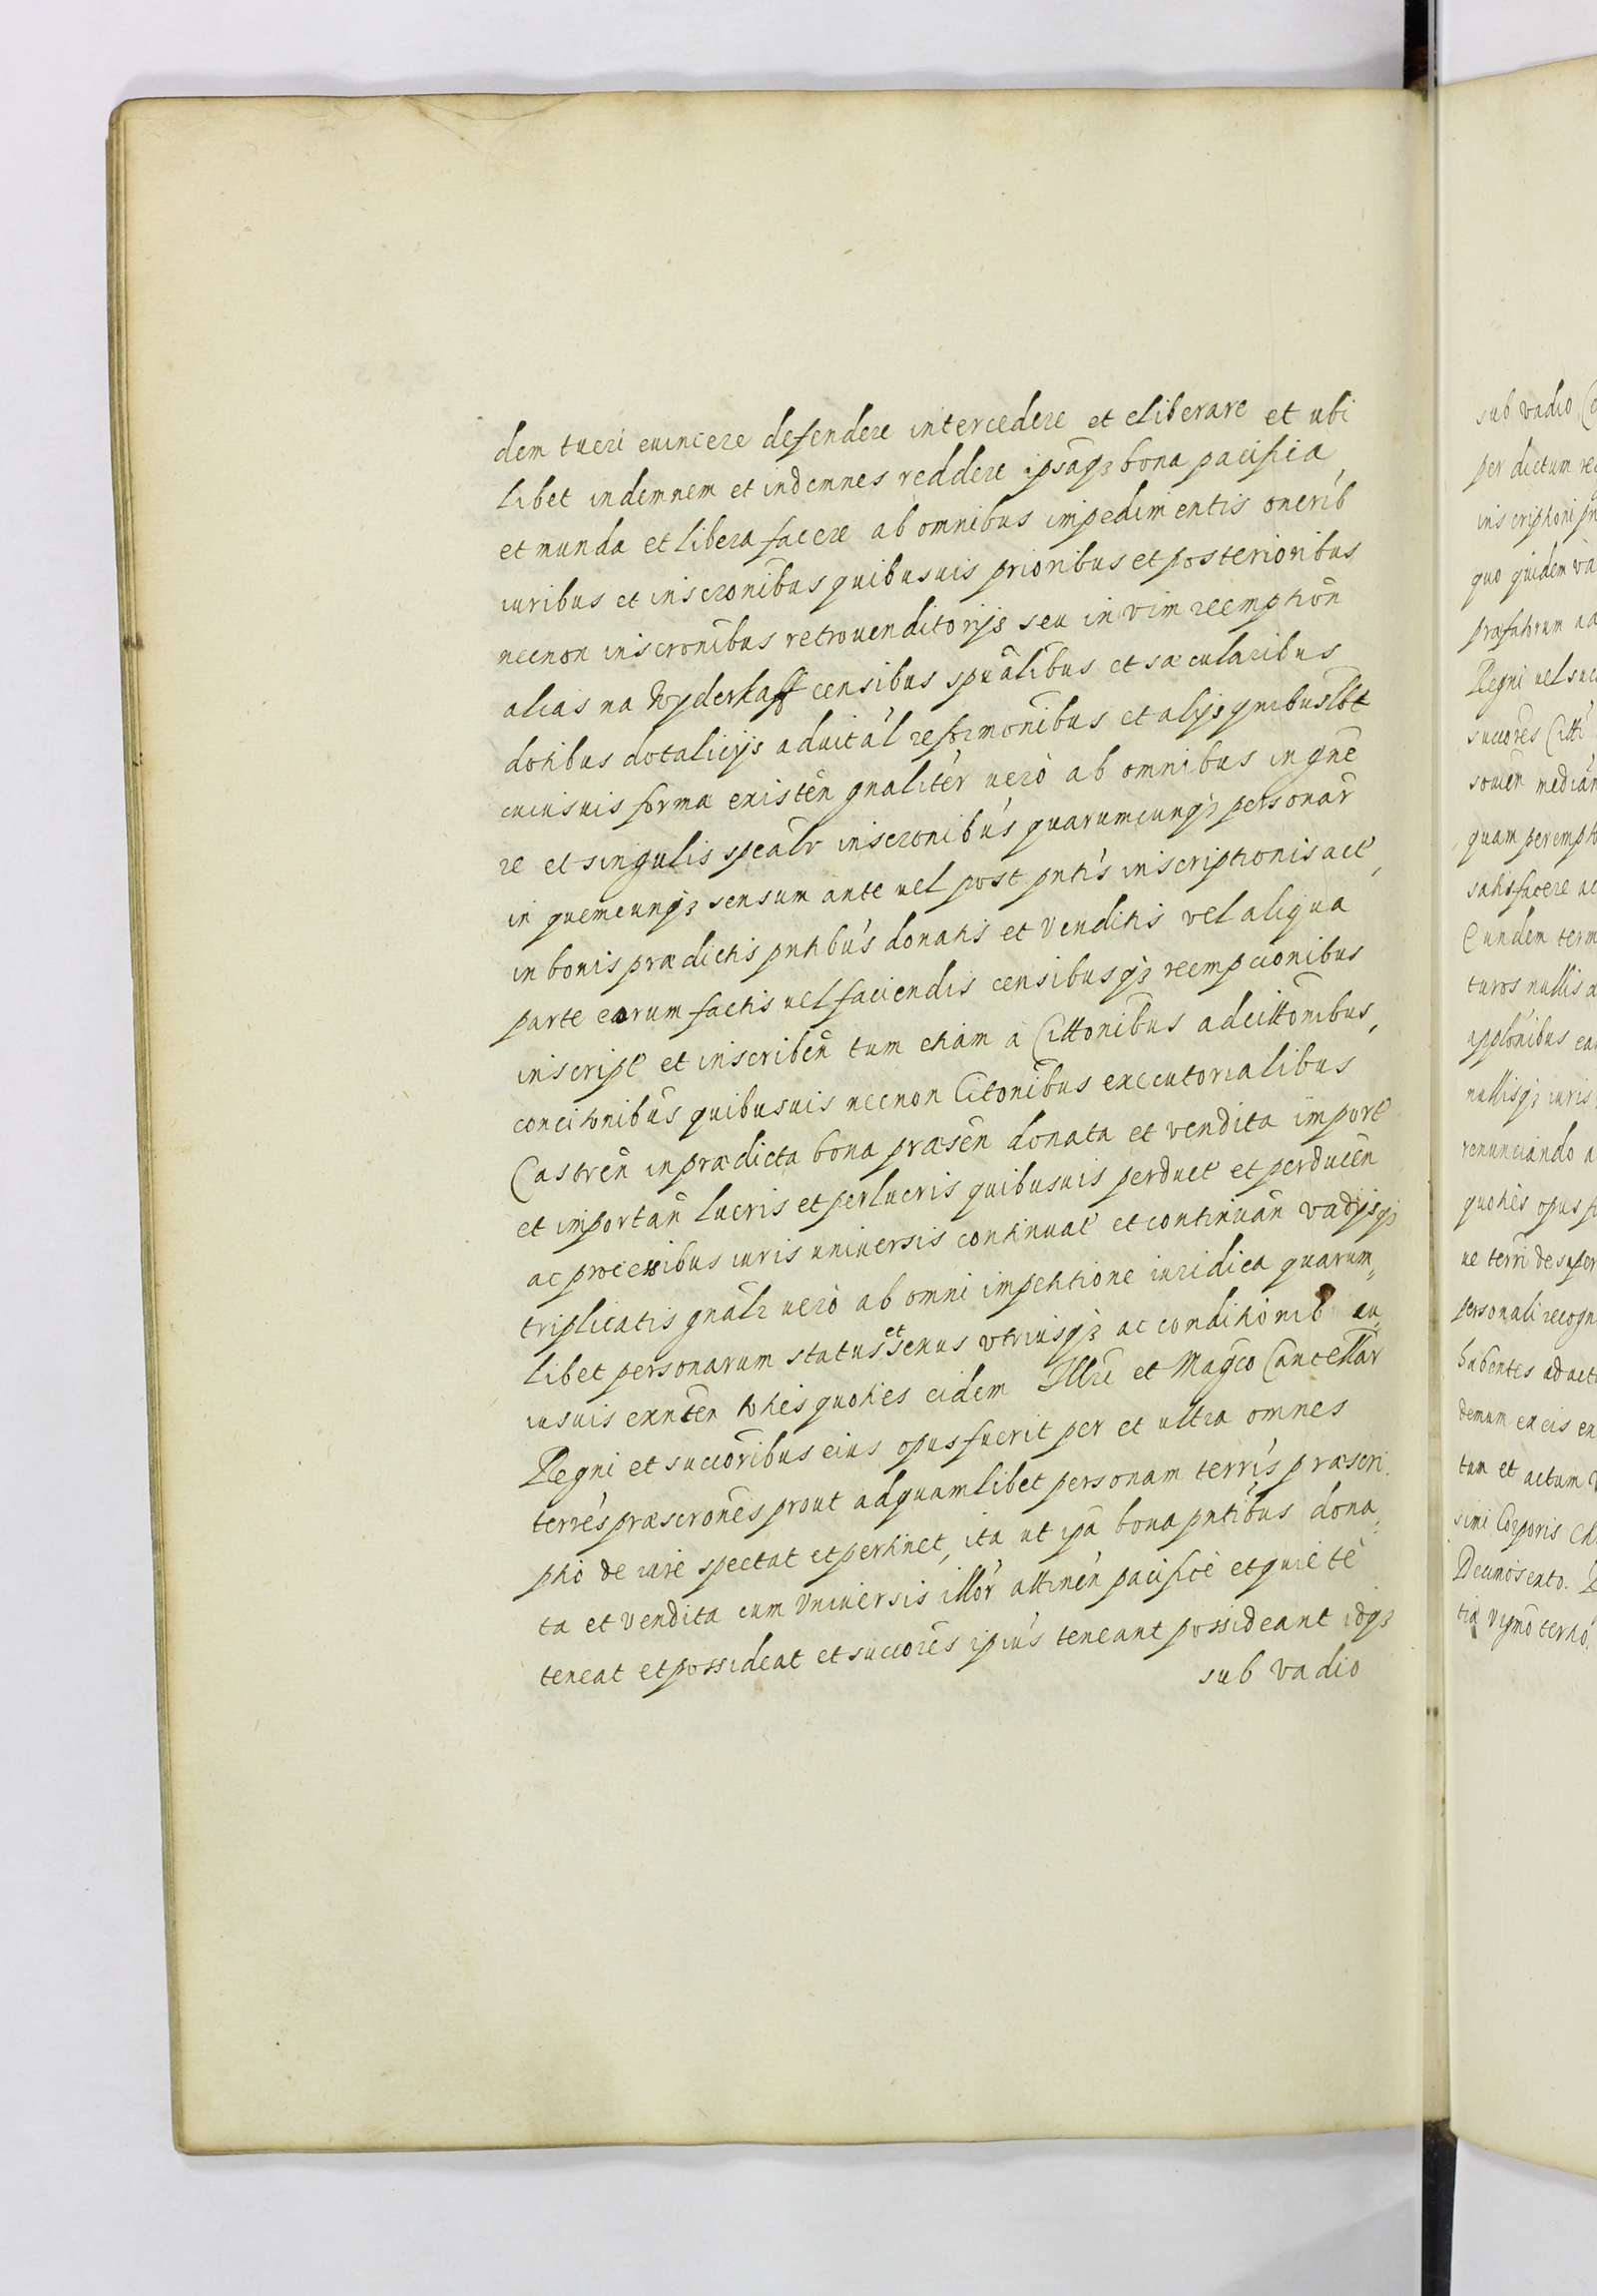 dem tueri euincere defendere intercedere et eliberare et ubi
libet indemnem et indemnes reddere ipsaqꝫ bona pacifica
et munda et libera facere ab omnibus impedimentis onerib
iuribus et inscronibus quibusuis prioribus et posterioribus
necnon inscronibus retrouenditorijs seu in vim reemption
alias na Wyderkaff censibus spualibus et sæcularibus
dotibus dotalicijs aduital reformonibus et alijs quibuslbt
cuiusuis formæ existen gnaliter uero ab omnibus in gne
re et singulis spealr inscronibus quarumcunqꝫ personar
in quemcunqꝫ sensum ante uel post pntis inscriptionis act,
in bonis prædictis pntibus donatis et venditis vel aliqua
parte earum factis uel faciendis censibusqꝫ reempcionibus
inscript et inscriben tum etiam à Cittonibus adcittonibus,
concitonibus quibusuis necnon Citonibus executorialibus
Castren in prædicta bona præsen donata et vendita import
et importan lucris et perlucris quibusuis perduct et perducen
ac processibus iuris uniuersis continuat et continuan vadijsqꝫ
triplicatis gnalr uero ab omni impetitione iuridica quarum„
libet personarum status et sexus vtriusqꝫ ac conditionib cu„
iusuis exnten toties quoties eidem Illri et Magco Cancellar
Regni et succoribus eius opus fuerit per et ultra omnes
terres præscrones prout ad quamlibet personam terris præscri
ptio de iure spectat et pertinet, ita ut ipa bona pntibus dona„
ta et vendita cum Vniuersis illor attinen pacifice et quiete
teneat et possideat et succores ipius teneant possideant idqꝫ
sub vadio
sub vadio
per dictum
quo quidem
Regni uel
satisfacere
Eundem
turos nullis
renunciando
quoties opus
habentes
tum et actum
simi Corporis